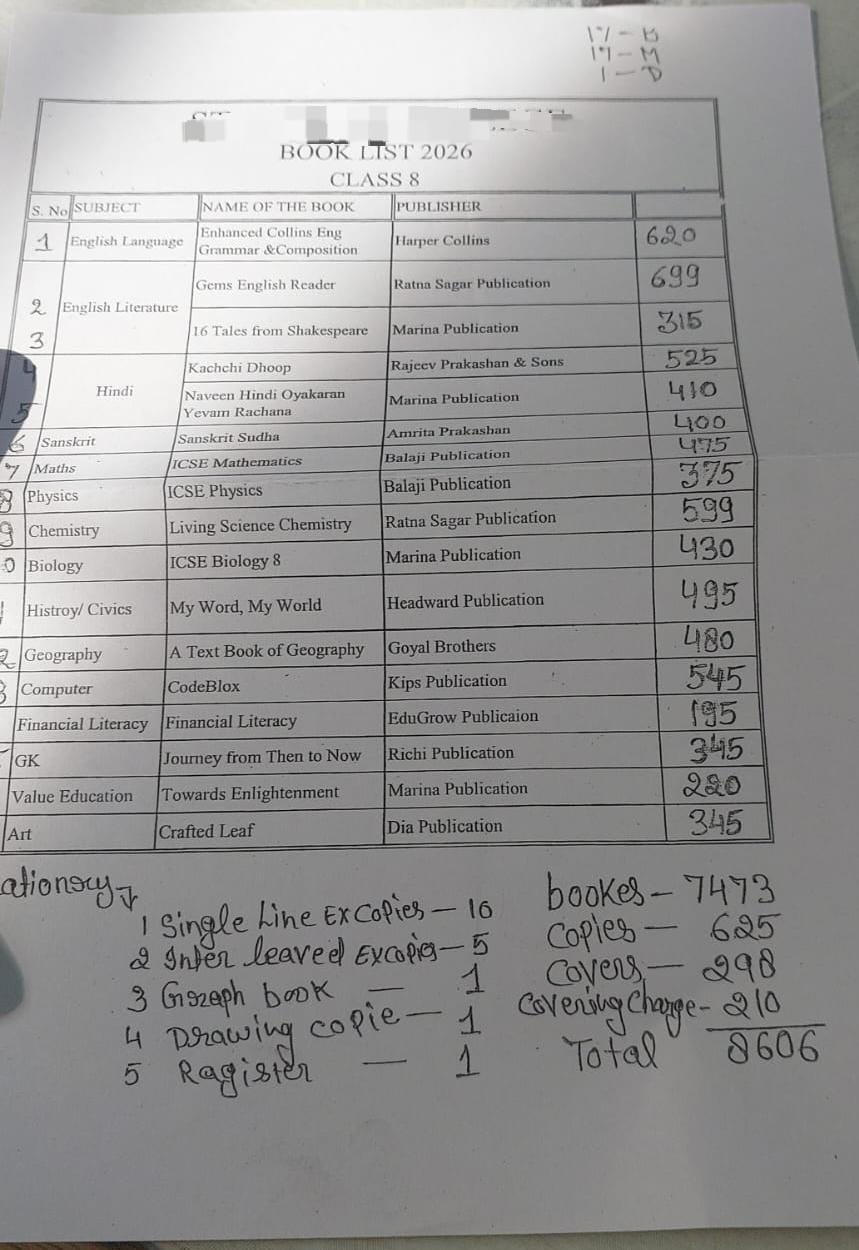 17 - B
17 - M
1 - D
BOOK LIST 2026
CLASS 8
S. No SUBJECT NAME OF THE BOOK PUBLISHER
1 English Language Enhanced Collins Eng Grammar &Composition Harper Collins 620
2 English Literature Gems English Reader Ratna Sagar Publication 699
3 16 Tales from Shakespeare Marina Publication 315
4 Hindi Kachchi Dhoop Rajeev Prakashan & Sons 525
5 Naveen Hindi Oyakaran Yevam Rachana Marina Publication 410
6 Sanskrit Sanskrit Sudha Amrita Prakashan 400
7 Maths ICSE Mathematics Balaji Publication 475
8 Physics ICSE Physics Balaji Publication 375
9 Chemistry Living Science Chemistry Ratna Sagar Publication 599
0 Biology ICSE Biology 8 Marina Publication 430
Histroy/ Civics My Word, My World Headward Publication 495
2 Geography A Text Book of Geography Goyal Brothers 480
3 Computer CodeBlox Kips Publication 545
Financial Literacy Financial Literacy EduGrow Publicaion 195
GK Journey from Then to Now Richi Publication 345
Value Education Towards Enlightenment Marina Publication 220
Art Crafted Leaf Dia Publication 345
ationory
1 Single Line Ex Copies - 10
2 Inter leaved Ex Copies - 5
3 Graph book - 1
4 Drawing copie - 1
5 Ragister - 1
bookes - 7473
Copies - 625
Covers - 298
Covering Charge - 210
Total 8606